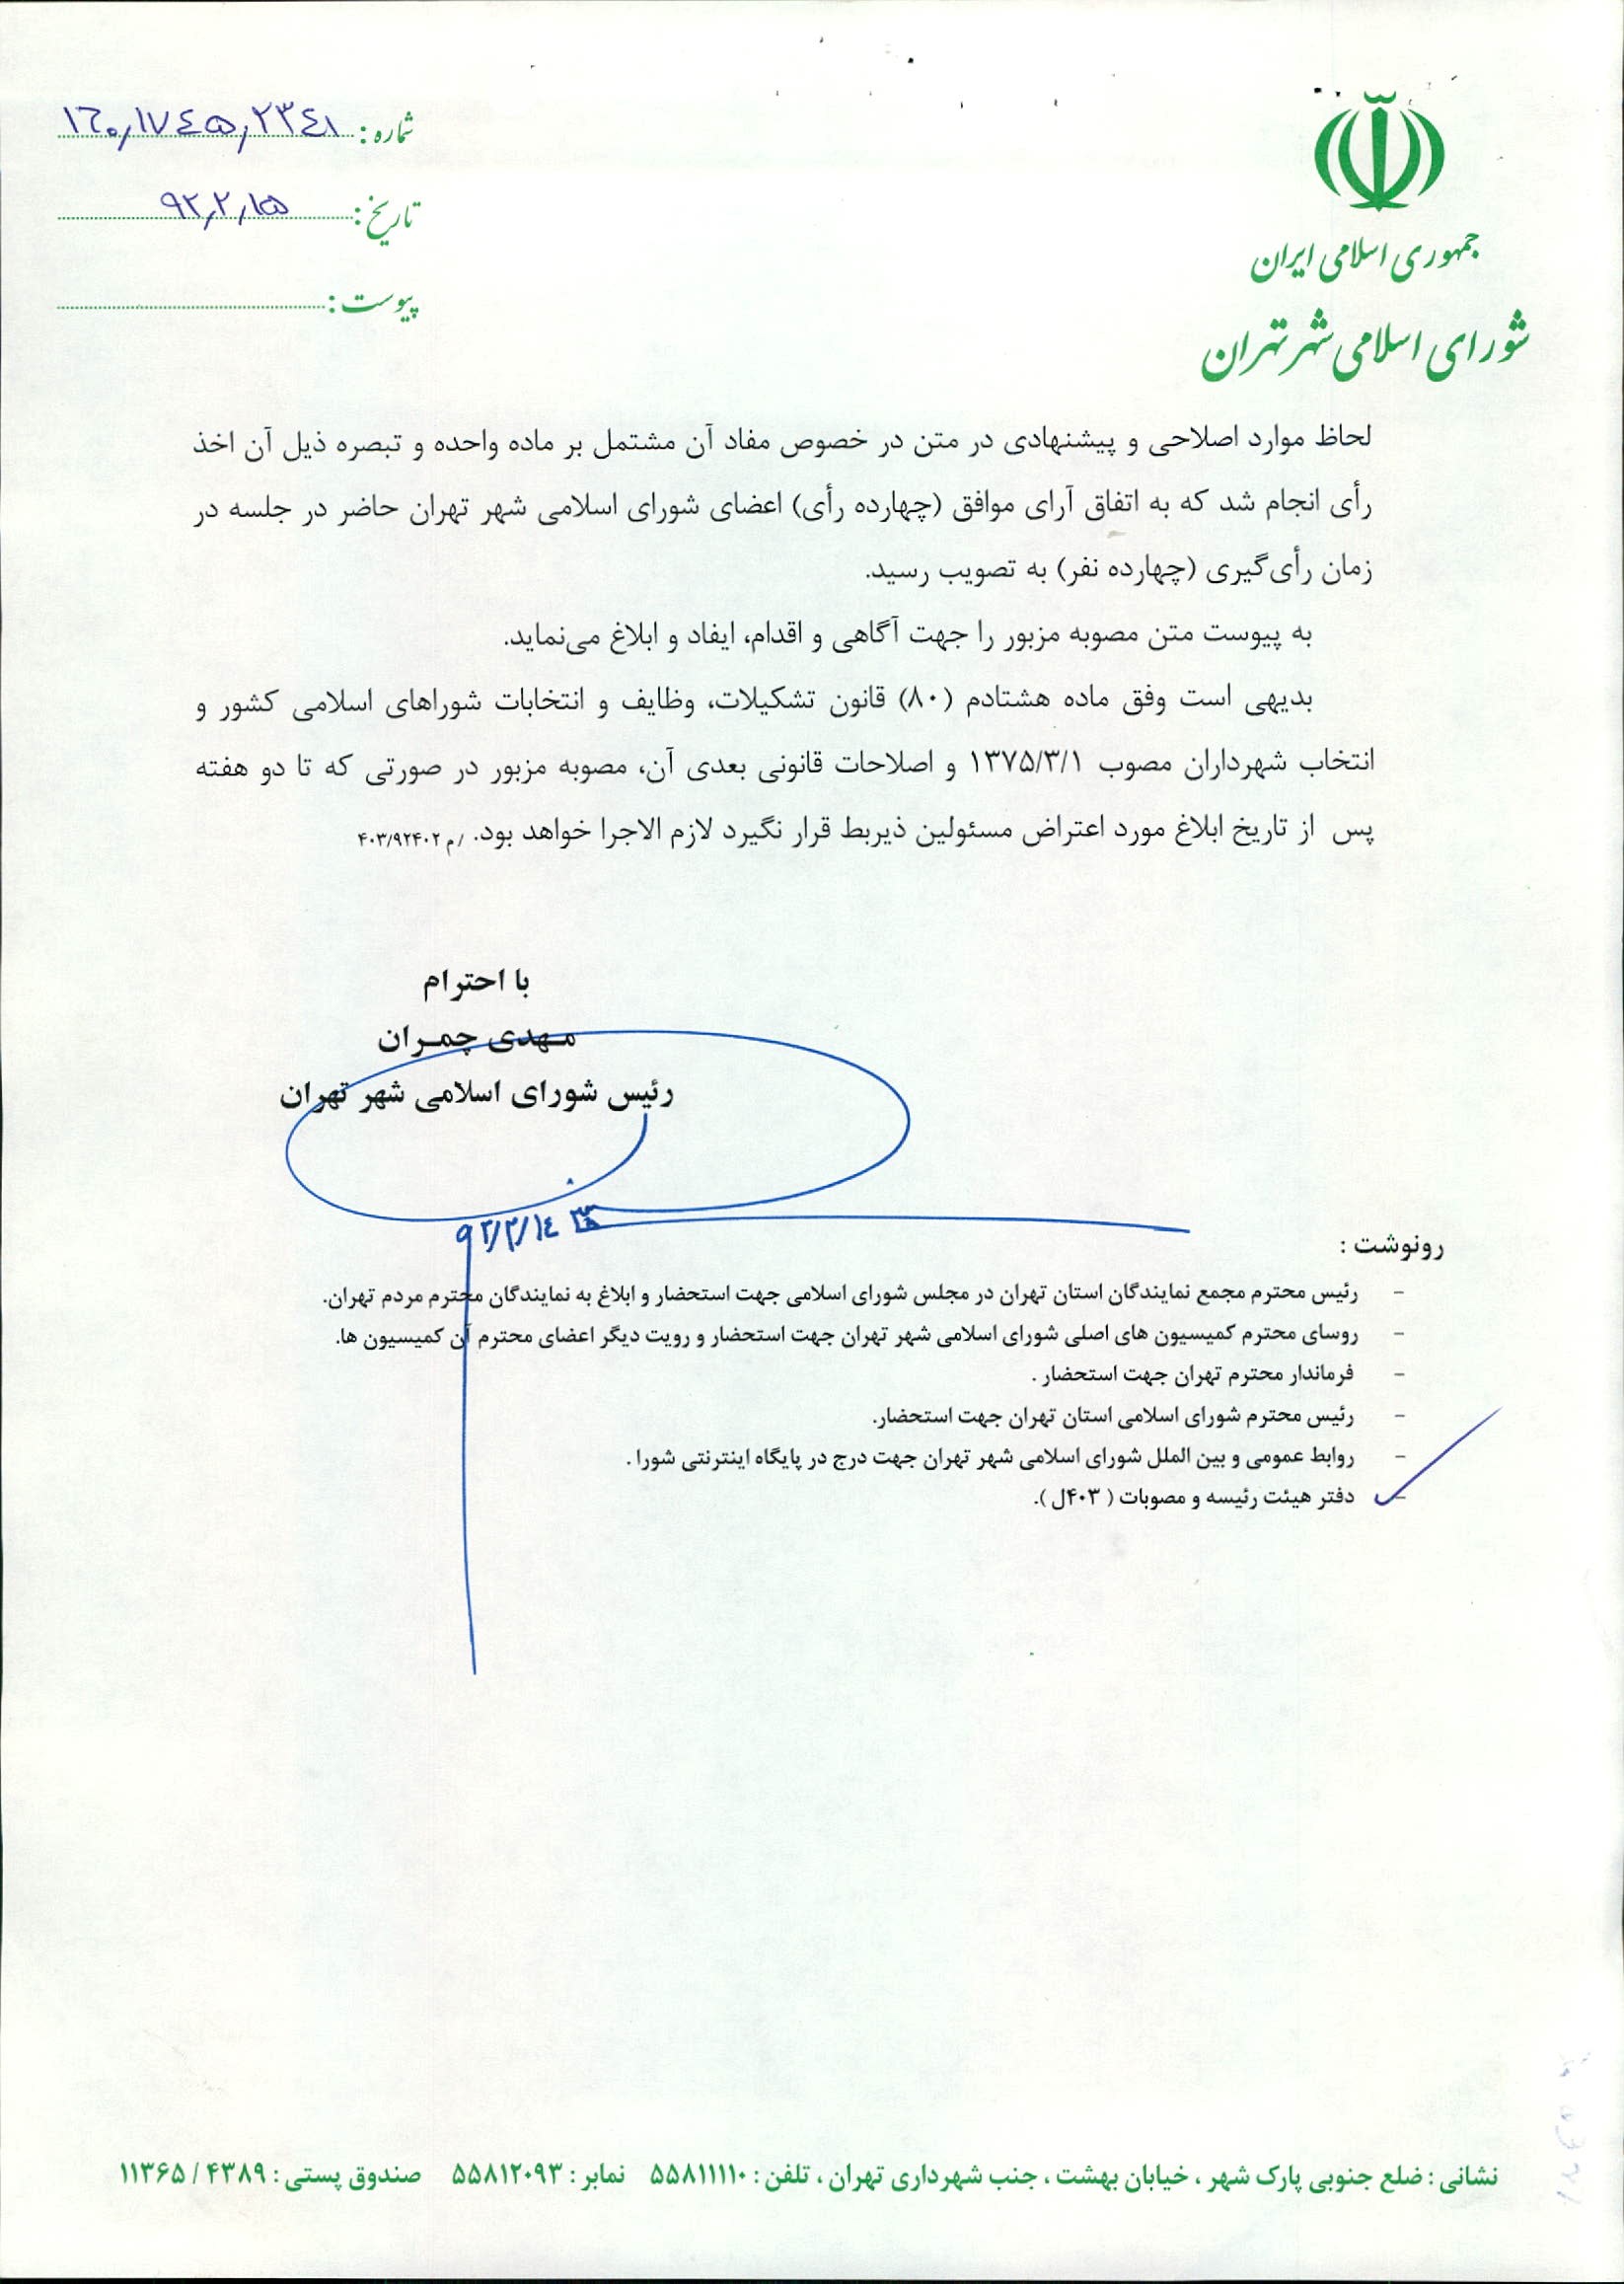 جمهوری اسلامی ایران
شورای اسلامی شهر تهران
شماره : ۱۶۰/۱۷۴۵/۲۳۴۱
تاریخ : ۹۲/۲/۱۵
پیوست :
لحاظ موارد اصلاحی و پیشنهادی در متن در خصوص مفاد آن مشتمل بر ماده واحده و تبصره ذیل آن اخذ
رأی انجام شد که به اتفاق آرای موافق (چهارده رأی) اعضای شورای اسلامی شهر تهران حاضر در جلسه در
زمان رأی‌گیری (چهارده نفر) به تصویب رسید.
به پیوست متن مصوبه مزبور را جهت آگاهی و اقدام، ایفاد و ابلاغ می‌نماید.
بدیهی است وفق ماده هشتادم (۸۰) قانون تشکیلات، وظایف و انتخابات شوراهای اسلامی کشور و
انتخاب شهرداران مصوب ۱۳۷۵/۳/۱ و اصلاحات قانونی بعدی آن، مصوبه مزبور در صورتی که تا دو هفته
پس از تاریخ ابلاغ مورد اعتراض مسئولین ذیربط قرار نگیرد لازم الاجرا خواهد بود. /م ۴۰۳/۹۲۴۰۲
با احترام
مهدی چمران
رئیس شورای اسلامی شهر تهران
۹۲/۲/۱۴
رونوشت :
- رئیس محترم مجمع نمایندگان استان تهران در مجلس شورای اسلامی جهت استحضار و ابلاغ به نمایندگان محترم مردم تهران.
- روسای محترم کمیسیون های اصلی شورای اسلامی شهر تهران جهت استحضار و رویت دیگر اعضای محترم آن کمیسیون ها.
- فرماندار محترم تهران جهت استحضار .
- رئیس محترم شورای اسلامی استان تهران جهت استحضار.
- روابط عمومی و بین الملل شورای اسلامی شهر تهران جهت درج در پایگاه اینترنتی شورا .
- دفتر هیئت رئیسه و مصوبات ( ۴۰۳ل ).
نشانی : ضلع جنوبی پارک شهر ، خیابان بهشت ، جنب شهرداری تهران ، تلفن : ۵۵۸۱۱۱۱۰ نمابر : ۵۵۸۱۲۰۹۳ صندوق پستی : ۴۳۸۹ / ۱۱۳۶۵